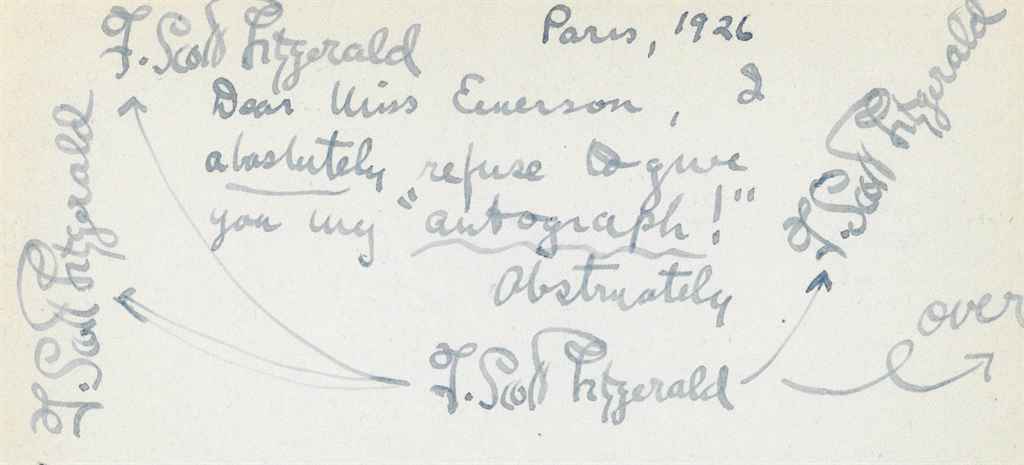 F. Scott Fitzgerald
Paris, 1926
Dear Miss Emerson, I
absolutely refuse to give
you my "autograph!"
Obstinately
F. Scott Fitzgerald
F. Scott Fitzgerald
F. Scott Fitzgerald
over